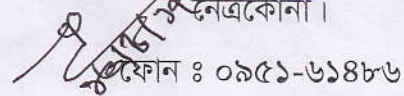 নেত্রকোনা।
ফোন ঃ ০৯৫১-৬১৪৮৬